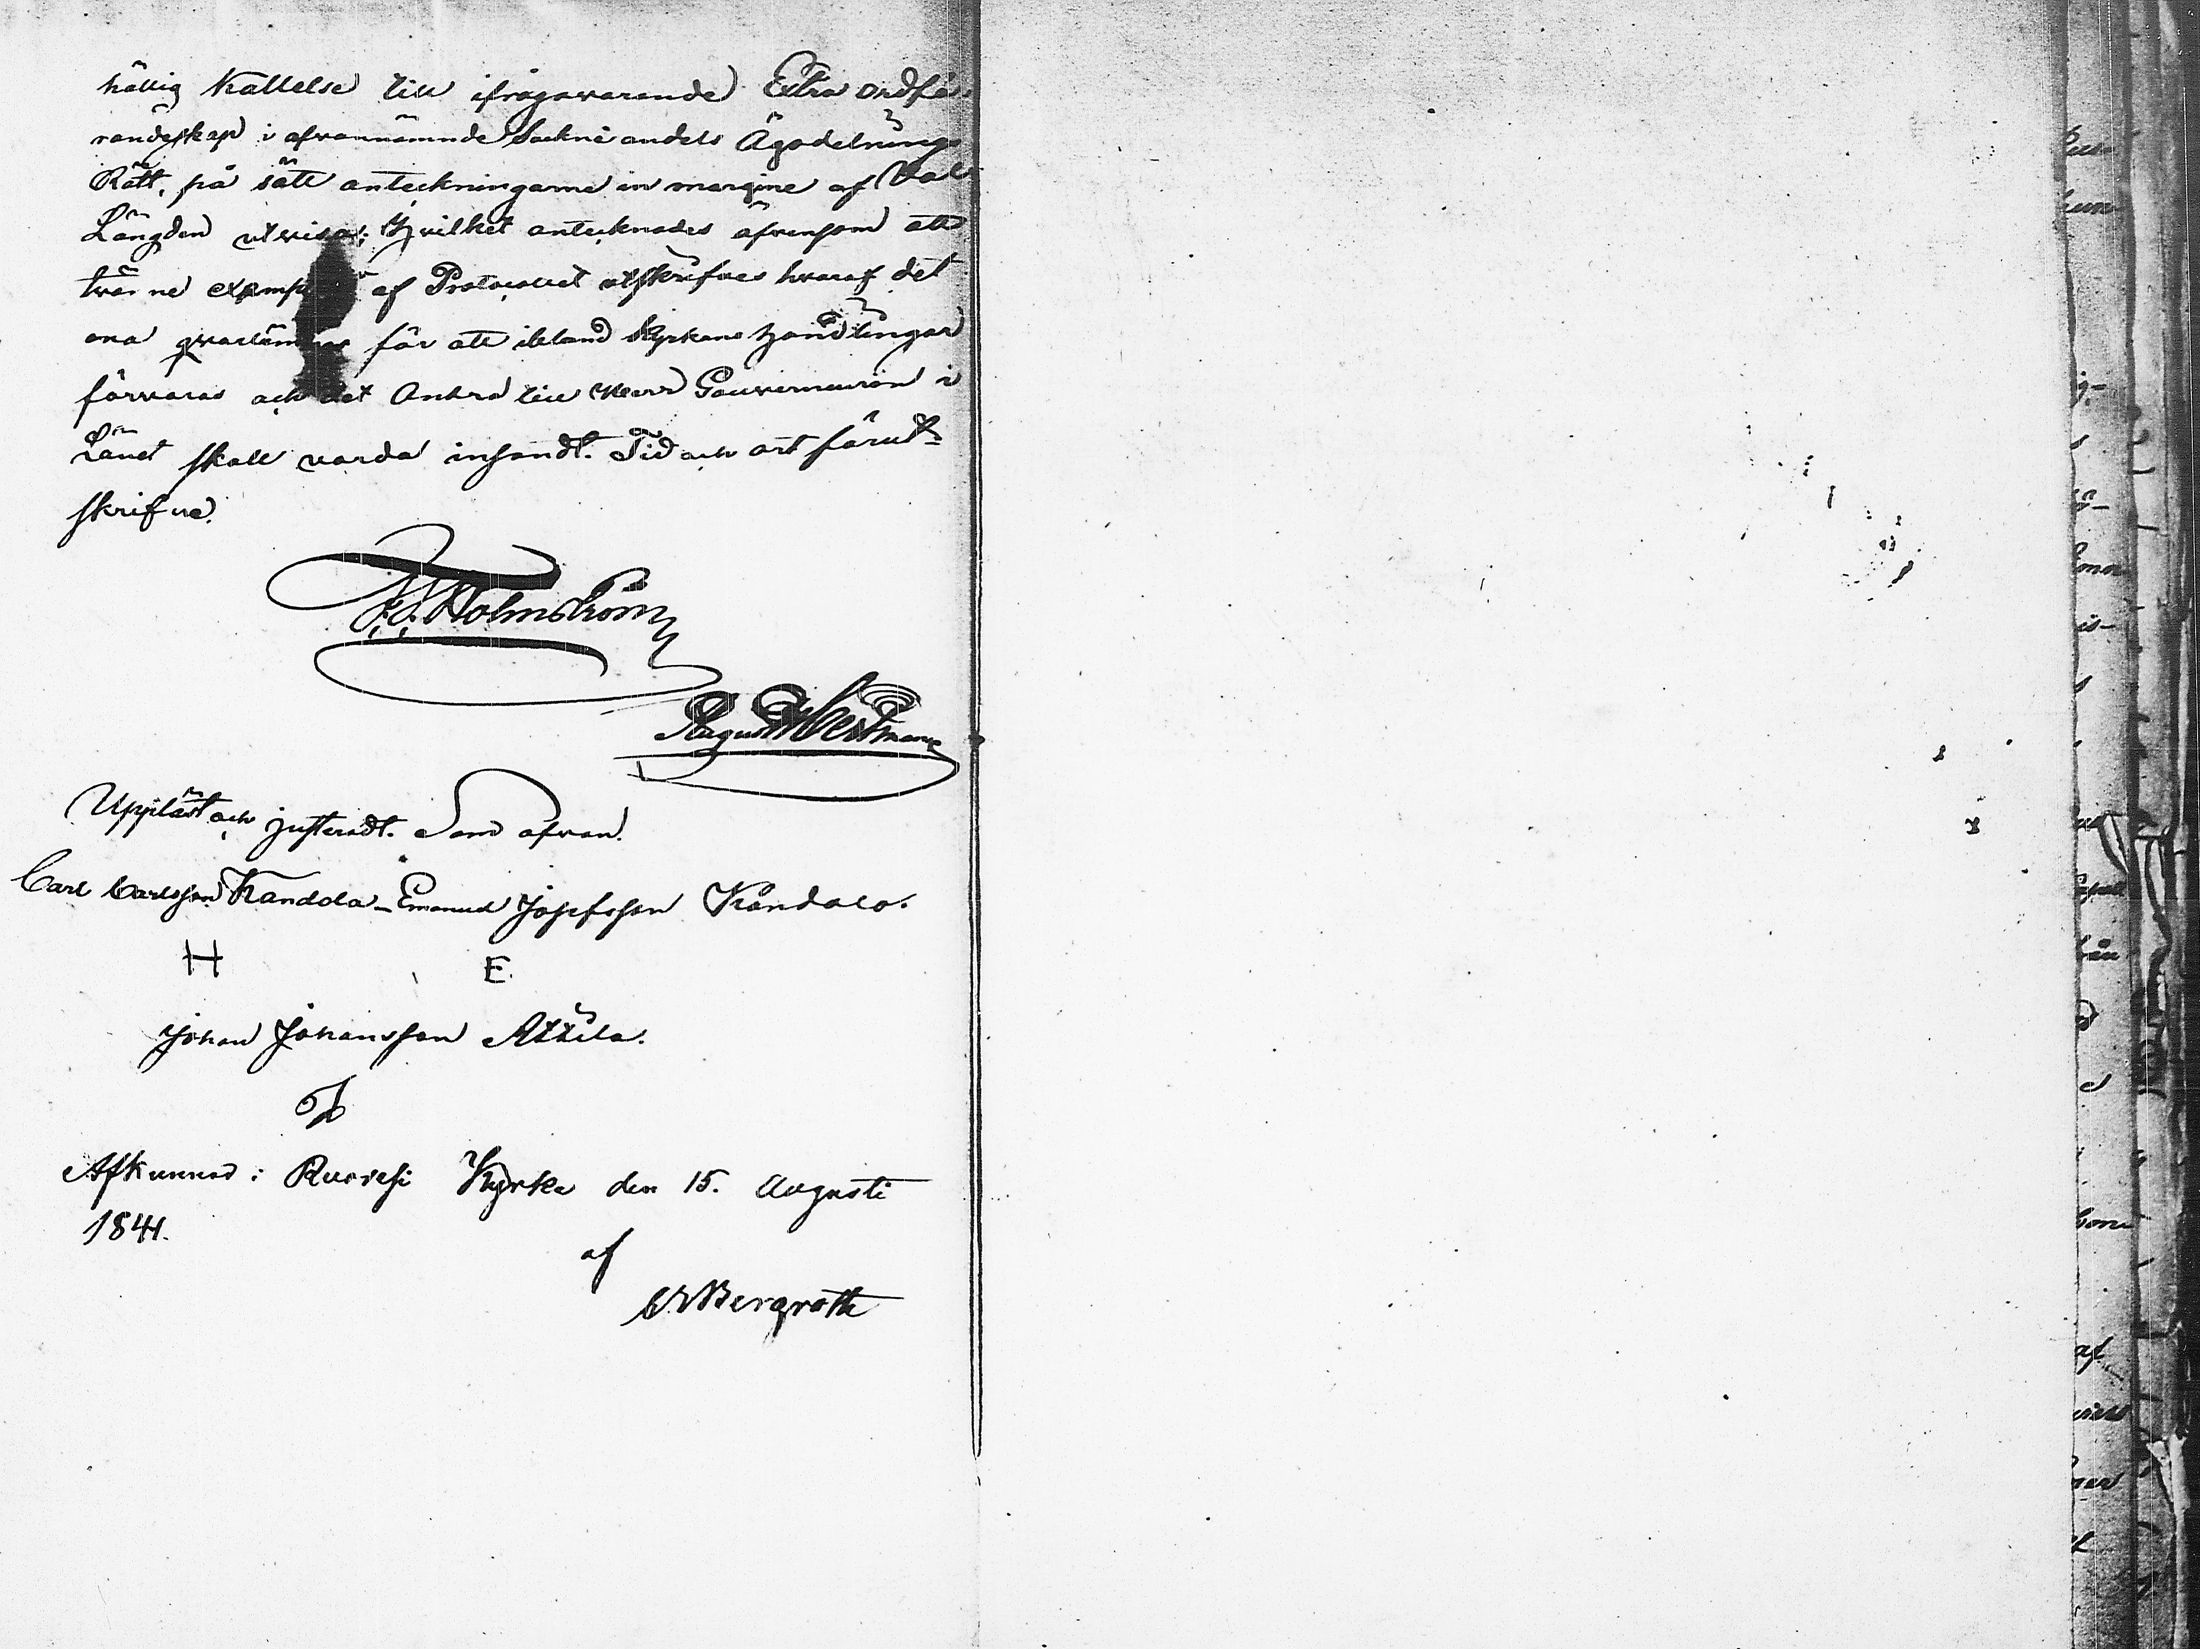 hållig Kallelse till ifrågavarande Extra ordfö-
randeskap i ofvannämnde Sockne andels Ägodelnings
Rätt, på sätt anteckningarne in margine af Val
Längden utvisa; Hvilket antecknades äfvensom att
tvänne exempl af Protocollet utskrifves hvaraf det
ena qvarlämnas för att ibland Kyrkans Handlingar
förvaras och det Andra till Herr Gouverneuren i
Länet skall varda insändt. Tid och ort förut-
skrifne.
Holmström
August
Uppläst och justeradt. Som ofvan.
Carl Carlsson Kandola - Emanuel Josefsson Kandola.
H E.
Johan Johansson Attila.
Afkunnad i Ruovesi Kyrka den 15. Augusti
1841.
af
Bergroth